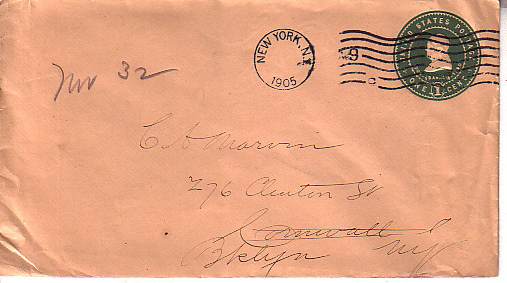 UNITED STATES POSTAGE
FRANKLIN
ONE CENT
1
NEW YORK, N.Y.
1905
9
C
C A Marvin
276 Clinton St
Cornwall
Bklyn NY